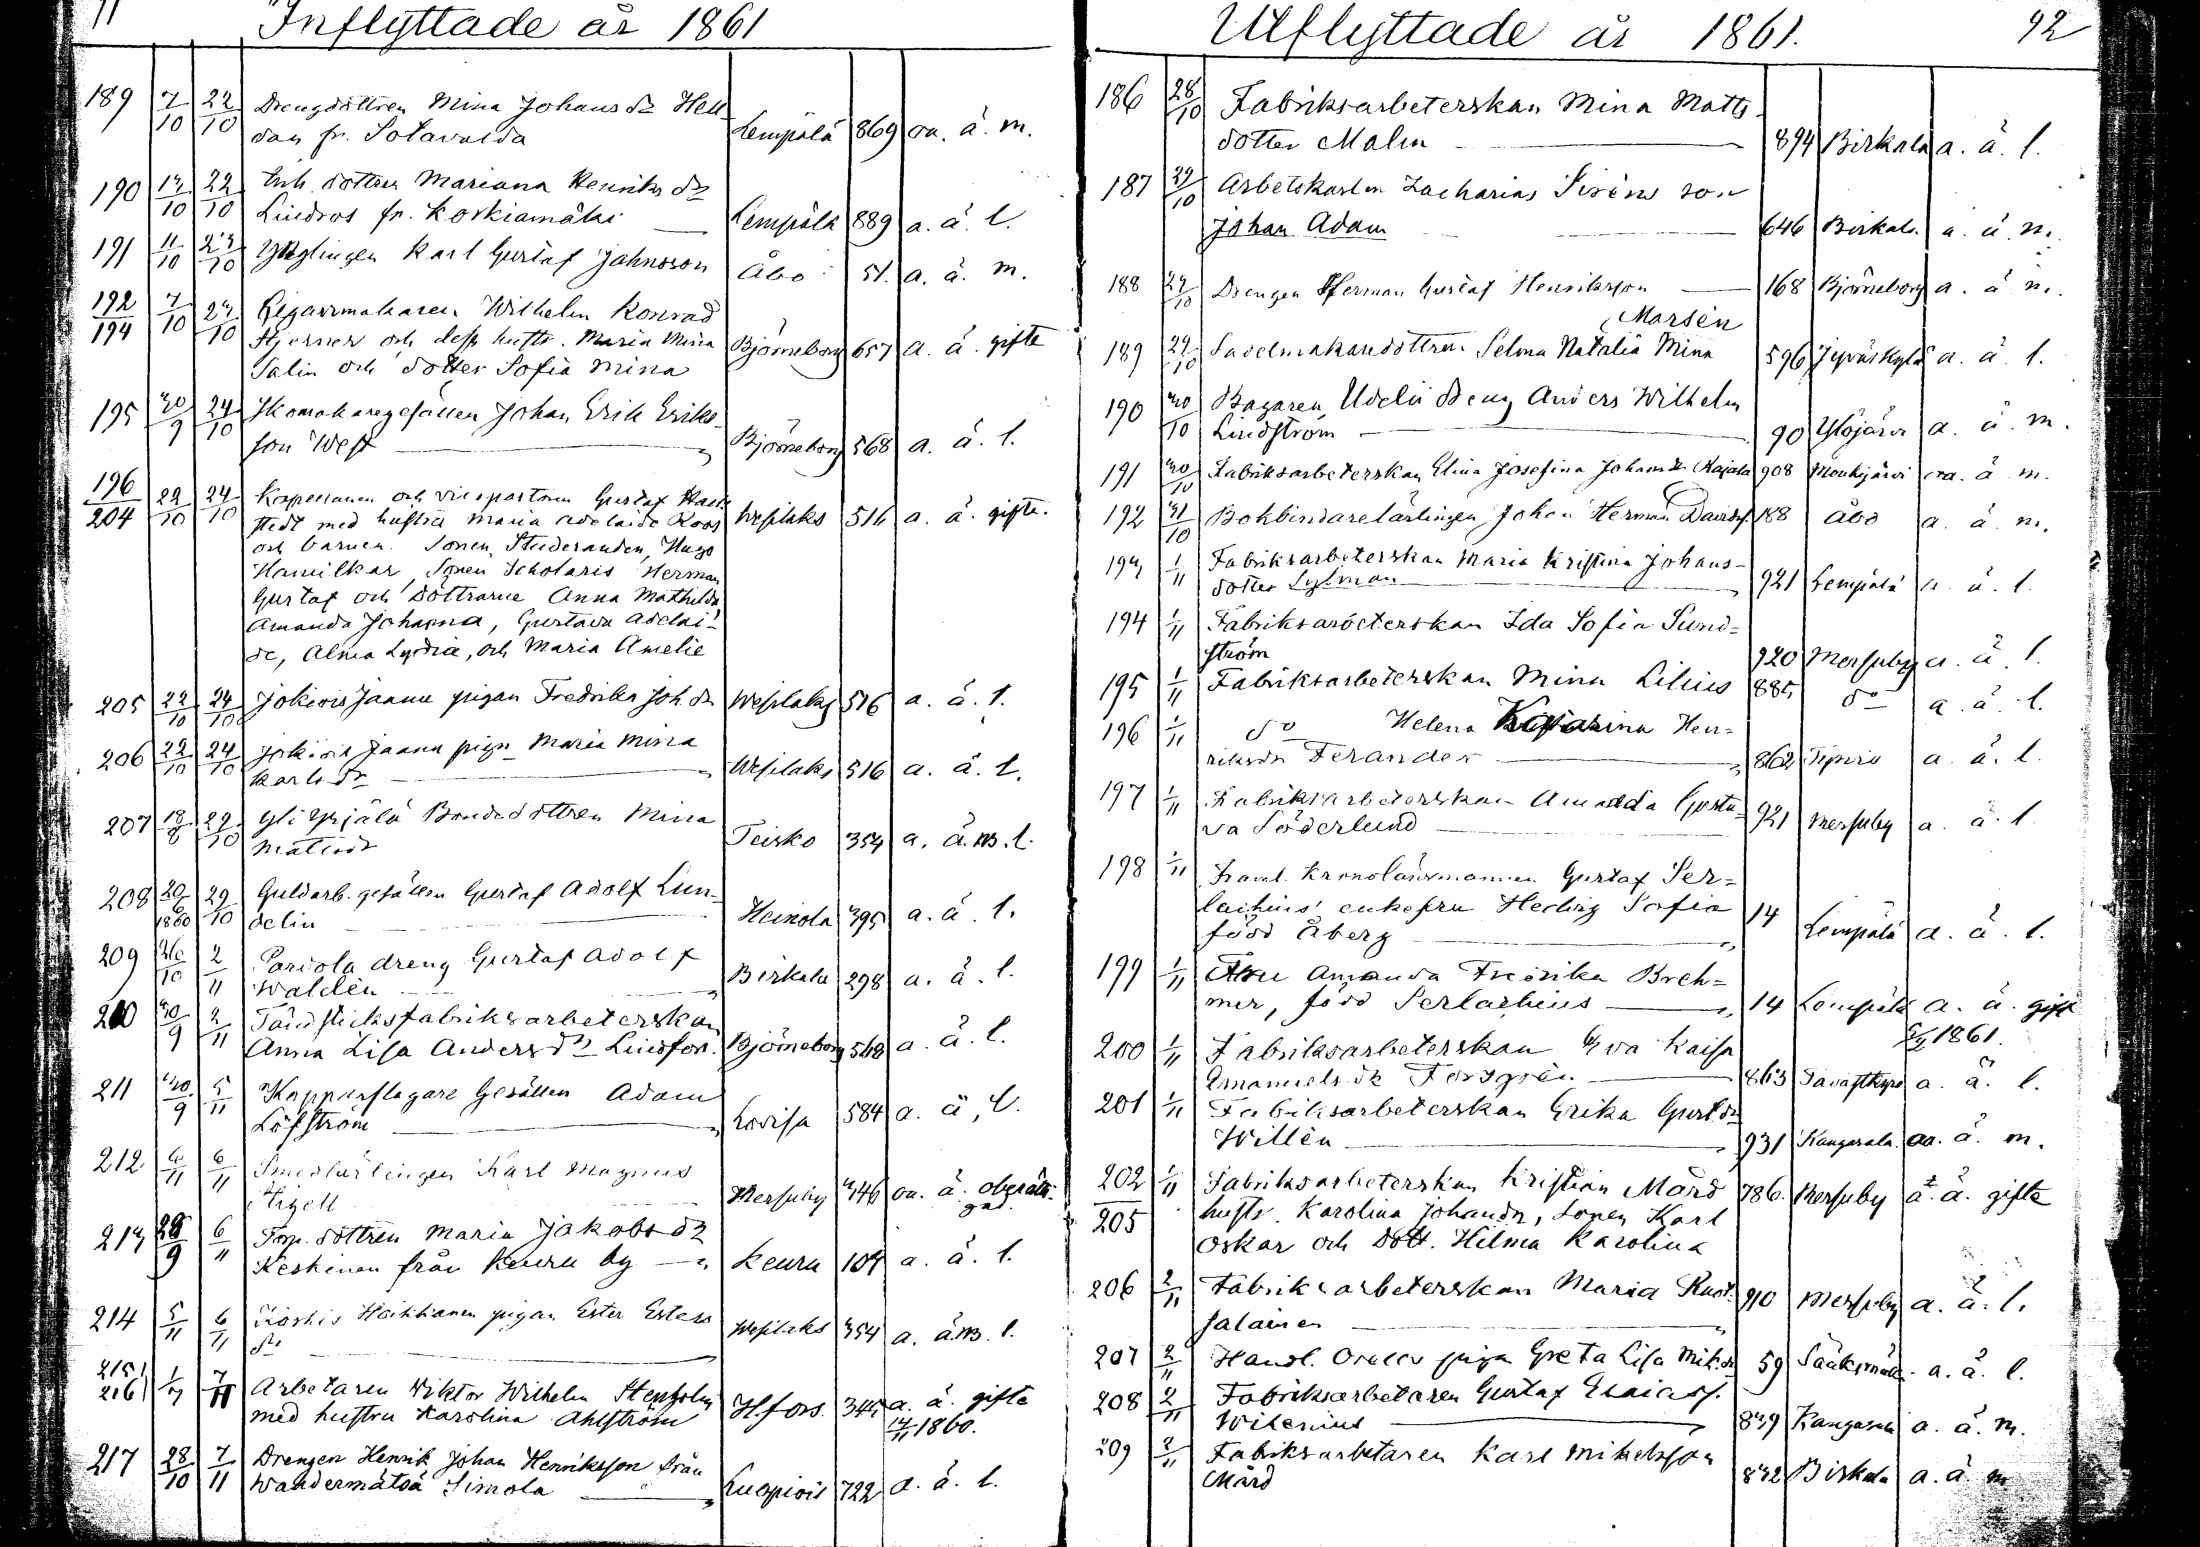 11
Inflyttade år 1861
189 7/10 22/10 Drengdottren Mina Johans dr Hell
dan fr. Sotavalda Lempälä 869 oa. ä. m.
190 22/10 Inh. dottren Mariana Henriks dr
Lindros fr. Korkiamäki Lempälä 889 a. ä. l.
191 11/10 23/10 Ynglingen Karl Gustaf Johnsson Åbo 51. a. ä. m.
192/194 7/10 23/10 Cigarrmakaren Wilhelm Konrad
Hjerner och dess hustr. Maria Mina Björneborg 657 a. ä. gifte
Salin och dotter Sofia Mina
195 30/9 24/10 Skomakaregesällen Johan Erik Eriks-
son West Björneborg 568 a. ä. l.
196/204 22/10 24/10 Kapellanen och vicepastoren Gustaf
stedt med hustru Maria Adelaide Roos Wesilaks 516 a. ä. gifte.
och barnen. Sonen, Studeranden, Hugo
Hamilkar, Sonen Scholaris Herman
Gustaf och Döttrarne Anna Mathilda
Amanda Johanna, Gustava Adelai-
de, Alma Lydia, och Maria Amelie
205 22/10 24/10 Jokiois Jaanu pigan Fredrika Joh dr Wesilaks 516 a. ä. l.
206 22/10 24/10 Jokiois Jaanu pign Maria Mina
Karls dr Wesilaks 516 a. ä. l.
207 18/8 29/10 Yli Yrjälä Bondedottren Mina
Matts dr Teisko 354 a. ä. m. l.
208 20/6 1860 29/10 Guldarb. gesällen Gustaf Adolf Lun-
delin Heinola 395 a. ä. l.
209 2/11 Pariola dreng Gustaf Adolf
Waldén Birkala 298 a. ä. l.
210 30/9 2/11 Tändsticksfabriksarbeterskan
Anna Lisa Anders dr Lindfors. Björneborg 568 a. ä. l.
211 30/9 5/11 Kopparslagare Gesällen Adam
Löfström Lovisa 584 a. ä, l.
212 6/11 6/11 Smedlärlingen Karl Magnus
Messuby 446 oa. ä.
213 28/9 6/11 Torp. dottren Maria Jakobs dr
Keskinen från Keuru by Keuru 104 a. ä. l.
214 5/11 6/11 Koskis Heikkanen pigan Ester
dr Wesilaks 354 a. ä. m. l.
215/216 1/7 7/11 Arbetaren Viktor Wilhelm Stenholm
med hustru Karolina Ahlström H.fors. 345 a. ä. gifte
1860.
217 28/10 7/11 Drengen Henrik Johan Henriksson från
Wandermätsä Simola Kuopiois 722 a. ä. l.
Utflyttade år 1861. 92
186 28/10 Fabriksarbeterskan Mina Matts
dotter Malin 894 Birkala a. ä. l.
187 29/10 Arbetskarlen Zacharias Siréns son
Johan Adam 646 Birkala a. ä. m.
188 29/10 Drengen Herman Gustaf Henriksson 168 Björneborg a. ä. m.
Marsén
189 29/10 Sadelmakaredottren Selma Natalia Mina 596 Jyväskylä a. ä. l.
190 30/10 Bagaren Udelii Deng Anders Wilhelm
Lindström 90 Ylöjärvi a. ä. m.
191 30/10 Fabriksarbeterskan Elina Josefina Johans dr Kajala 908 Mouhijärvi oa. ä m.
192 31/10 Bokbindarelärlingen Johan Herman Davidss. 188 Åbo a. ä. m.
193 1/11 Fabriksarbeterskan Maria Kristina Johans-
dotter Sylman 921 Lempälä a. ä. l.
194 1/11 Fabriksarbeterskan Ida Sofia Sund-
ström 920 Messuby a. ä. l.
195 1/11 Fabriksarbeterskan Mina Lilius 885 do a. ä. l.
196 1/11 do Helena Hen-
riksdr Ferander 862 a. ä. l.
197 1/11 Fabriksarbeterskan Amanda Gusta-
va Söderlund 921 Messuby a. ä. l.
198 1/11 Framl. Kronolänsmannen Gustaf Ser-
lachius' enkefru Hedvig Sofia 14 Lempälä a. ä. l.
född Åberg
199 1/11 Fru Amanda Fredrika Breh-
mer, född Serlachius 14 Lempälä a. ä. gift
1861.
200 1/11 Fabriksarbeterskan Eva Kaisa
Emanuels dr Forsgrén 863 Tavastkyro a. ä. l.
201 1/11 Fabriksarbeterskan Erika Gust dr
Willén 931 Kangasala oa. ä. m.
202/205 1/11 Fabriksarbeterskan Kristian Mård 786. Messuby a. ä. gifte
hustr. Karolina Johansdr, Sonen Karl
Oskar och Dott. Hilma Karolina
206 2/11 Fabriksarbeterskan Maria Ruot-
salainen 910 Messuby a. ä. l.
207 2/11 Handl. piga Greta Lisa Mik.dr 59 Sääksmäki a. ä. l.
208 2/11 Fabriksarbetaren Gustaf Esaiass.
Witenius 839 Kangasala a. ä. m.
209 2/11 Fabriksarbetaren Karl Mikelsson
Mård 832 Birkala a. ä. m